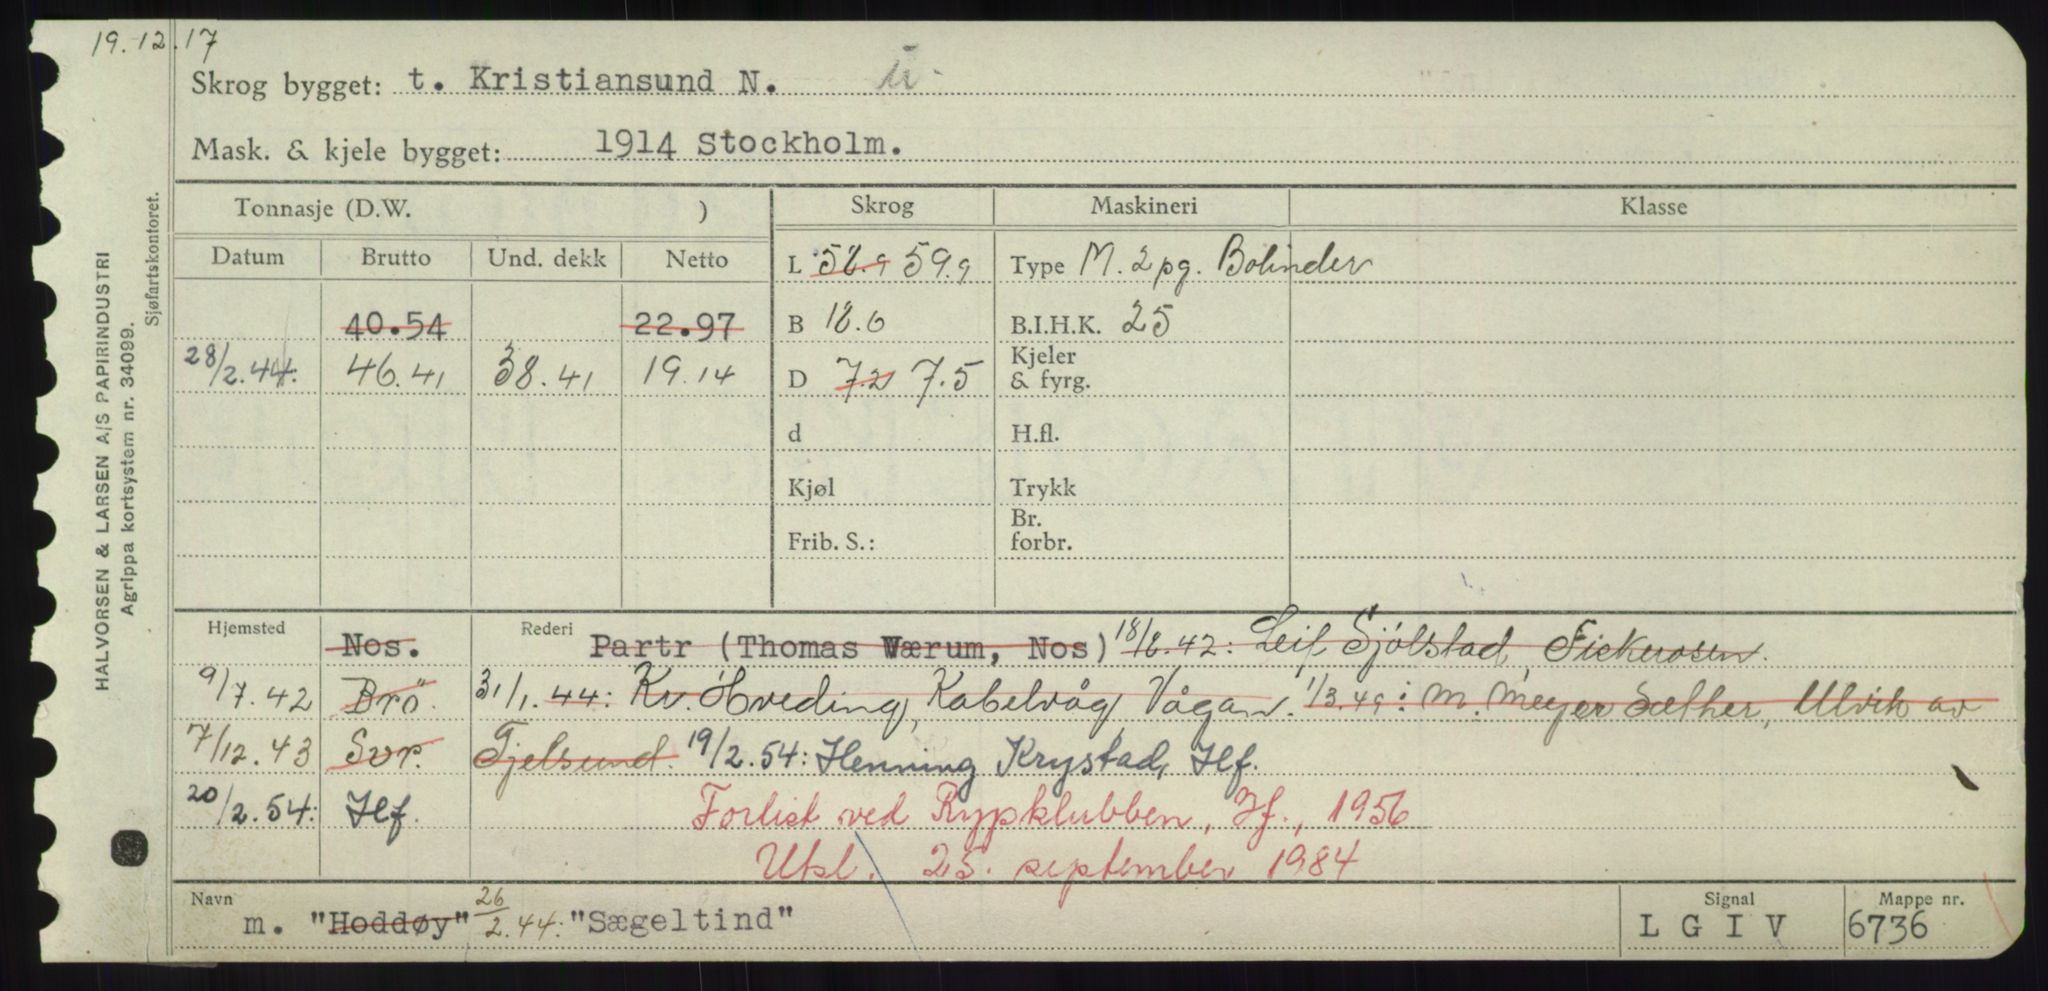 19.12.17
Skrog bygget: t. Kristiansund N.
Mask. & kjele bygget: 1914 Stockholm.
Tonnasje (D.W. ) Skrog Maskineri Klasse
Datum Brutto Und. dekk Netto
L 58.9 59.9 Type M. 2 pg. Bolinder
40.54 22.97 B 18.0 B.I.H.K. 25
28/2.44. 46.41 38.41 19.14 D 7.2 7.5 Kjeler & fyrg.
d H.fl.
Kjøl Trykk
Frib. S.: Br. forbr.
Hjemsted Nos. Rederi Partr (Thomas Wærum, Nos) 18/8.42: Leif Sjølstad,
9/7.42 Brö. 31/1.44: Kv. Hveding, Kabelvåg, Vågan. 1/3.49: M. Meyer Sæther, Ulvik av
7/12.43 Svr. Tjelsund. 19/2.54: Henning Krystad, Hf.
20/2.54: Hf. Forlist ved Rypklubben, If., 1956
Utsl. 25. september 1984
Navn m. "Hoddøy" 26/2.44: "Sægeltind" Signal L G I V Mappe nr. 6736
HALVORSEN & LARSEN A/S PAPIRINDUSTRI
Agrippa kortsystem nr. 34099.
Sjøfartskontoret.